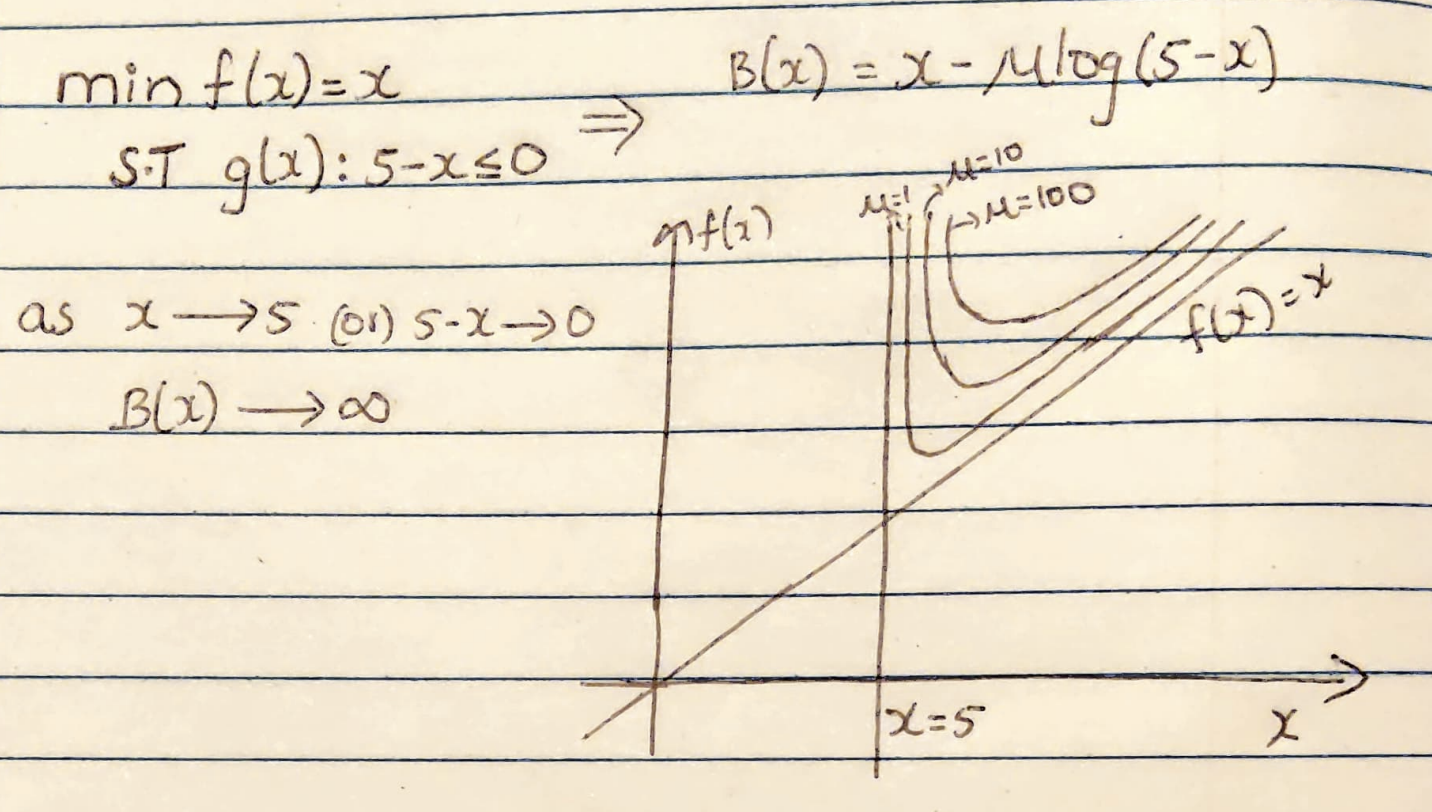 min f(x)=x
S.T g(x): 5-x≤0
⇒
B(x) = x-μlog(5-x)
as x→5 (or) 5-x→0
B(x)→∞
f(x)
μ=1
→μ=10
→μ=100
f(x)=x
x=5
x